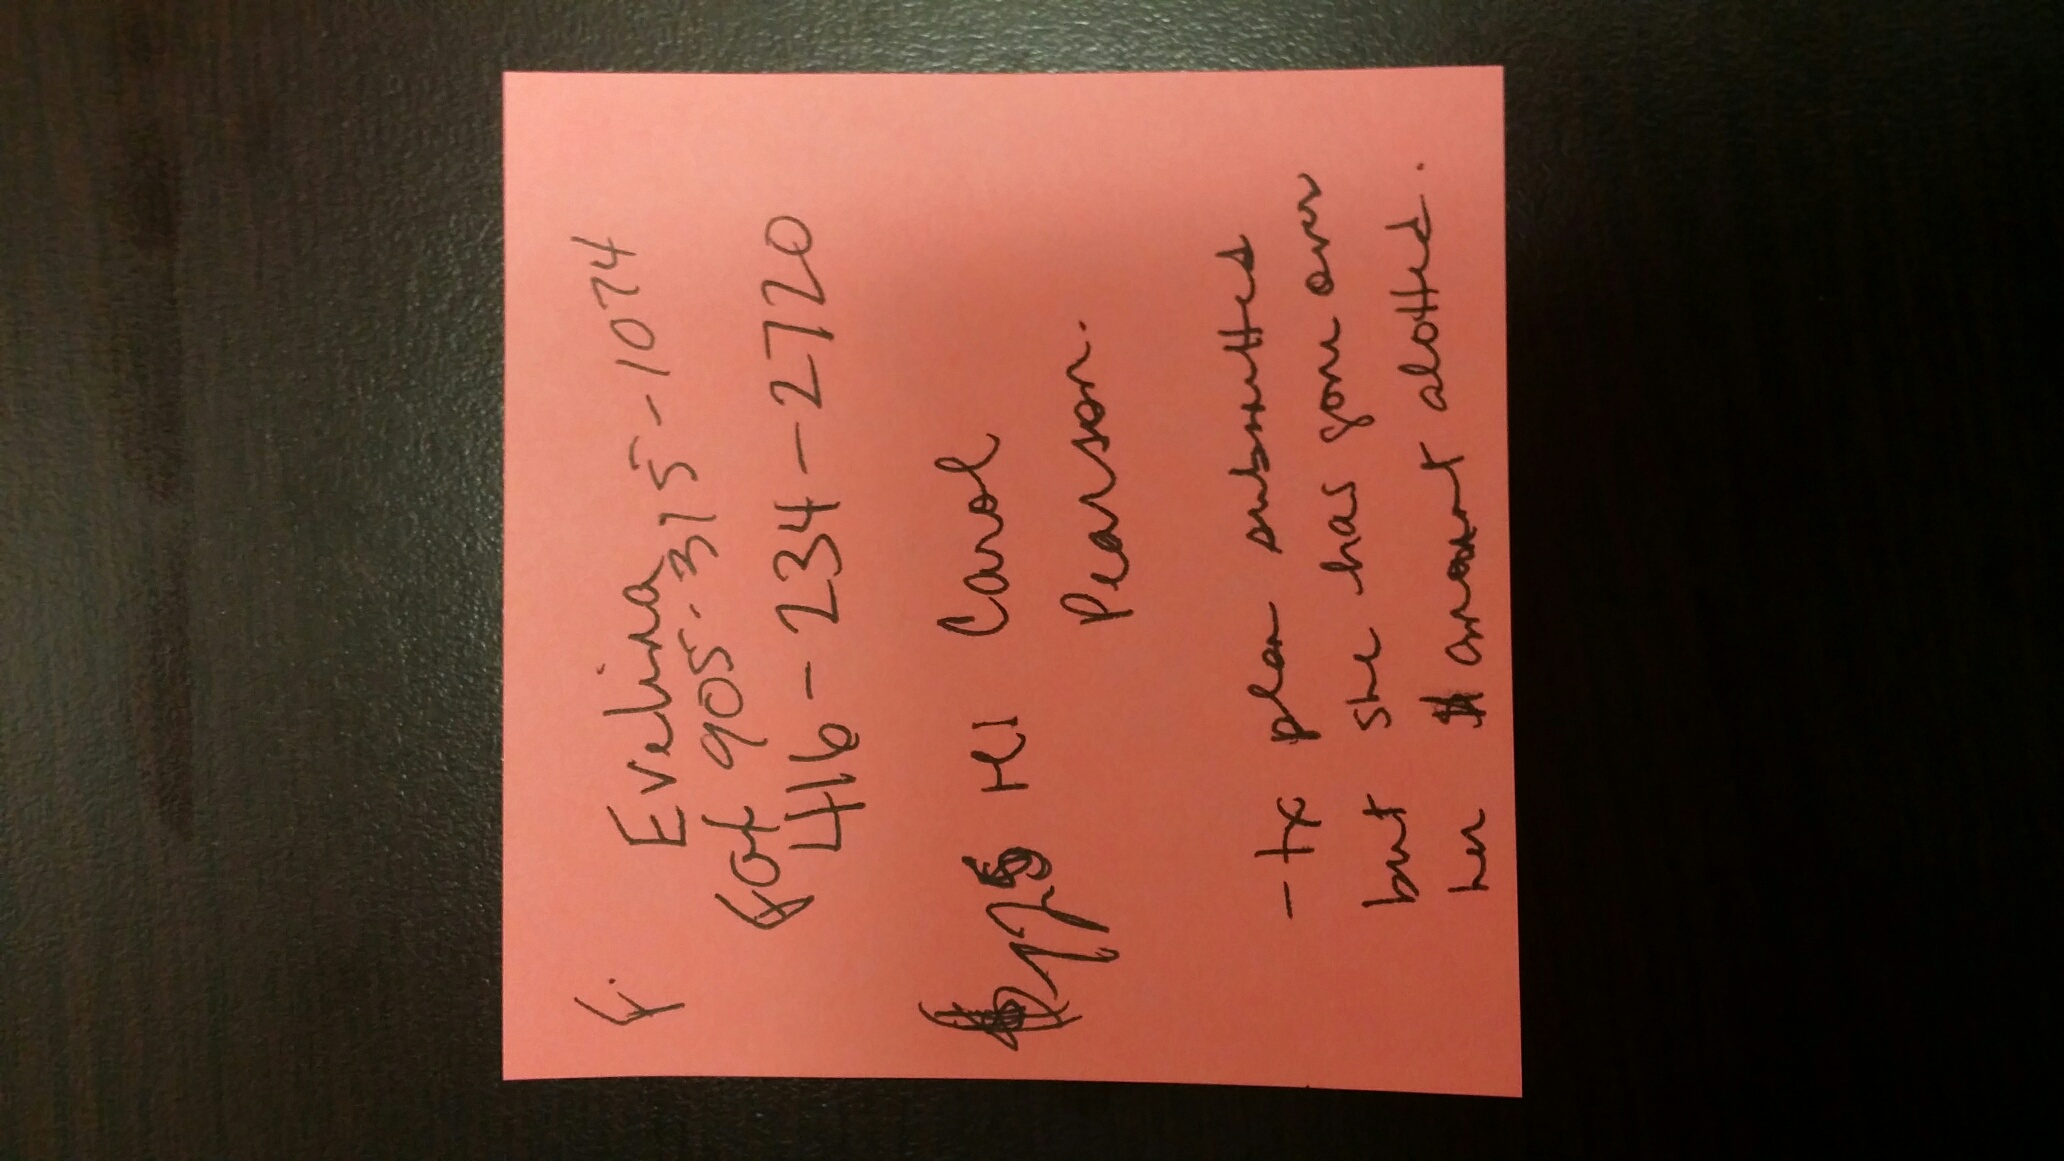 Evelina
at 905-315-1074
416-234-2720
HCI Carol
Pearson.
- tx plan submitted
but she has gone over
her $ amount alotted.